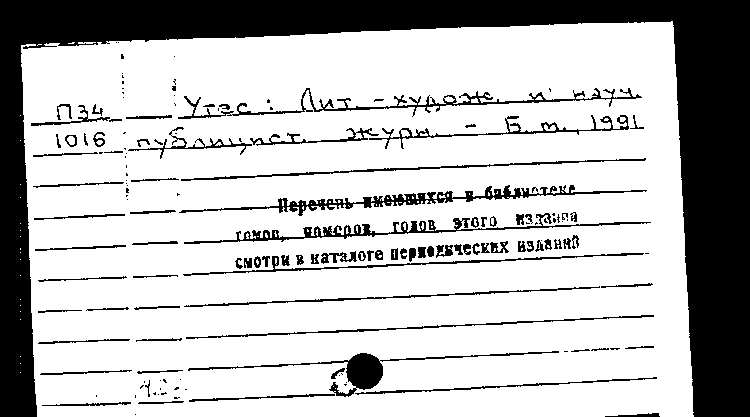 П34 Утес : Лит. - худож. и науч.
1016 публицист. журн. - Б. м., 1991
Перечень имеющихся в библиотеке
томов, номеров, годов этого издания
смотри в каталоге периодических изданий